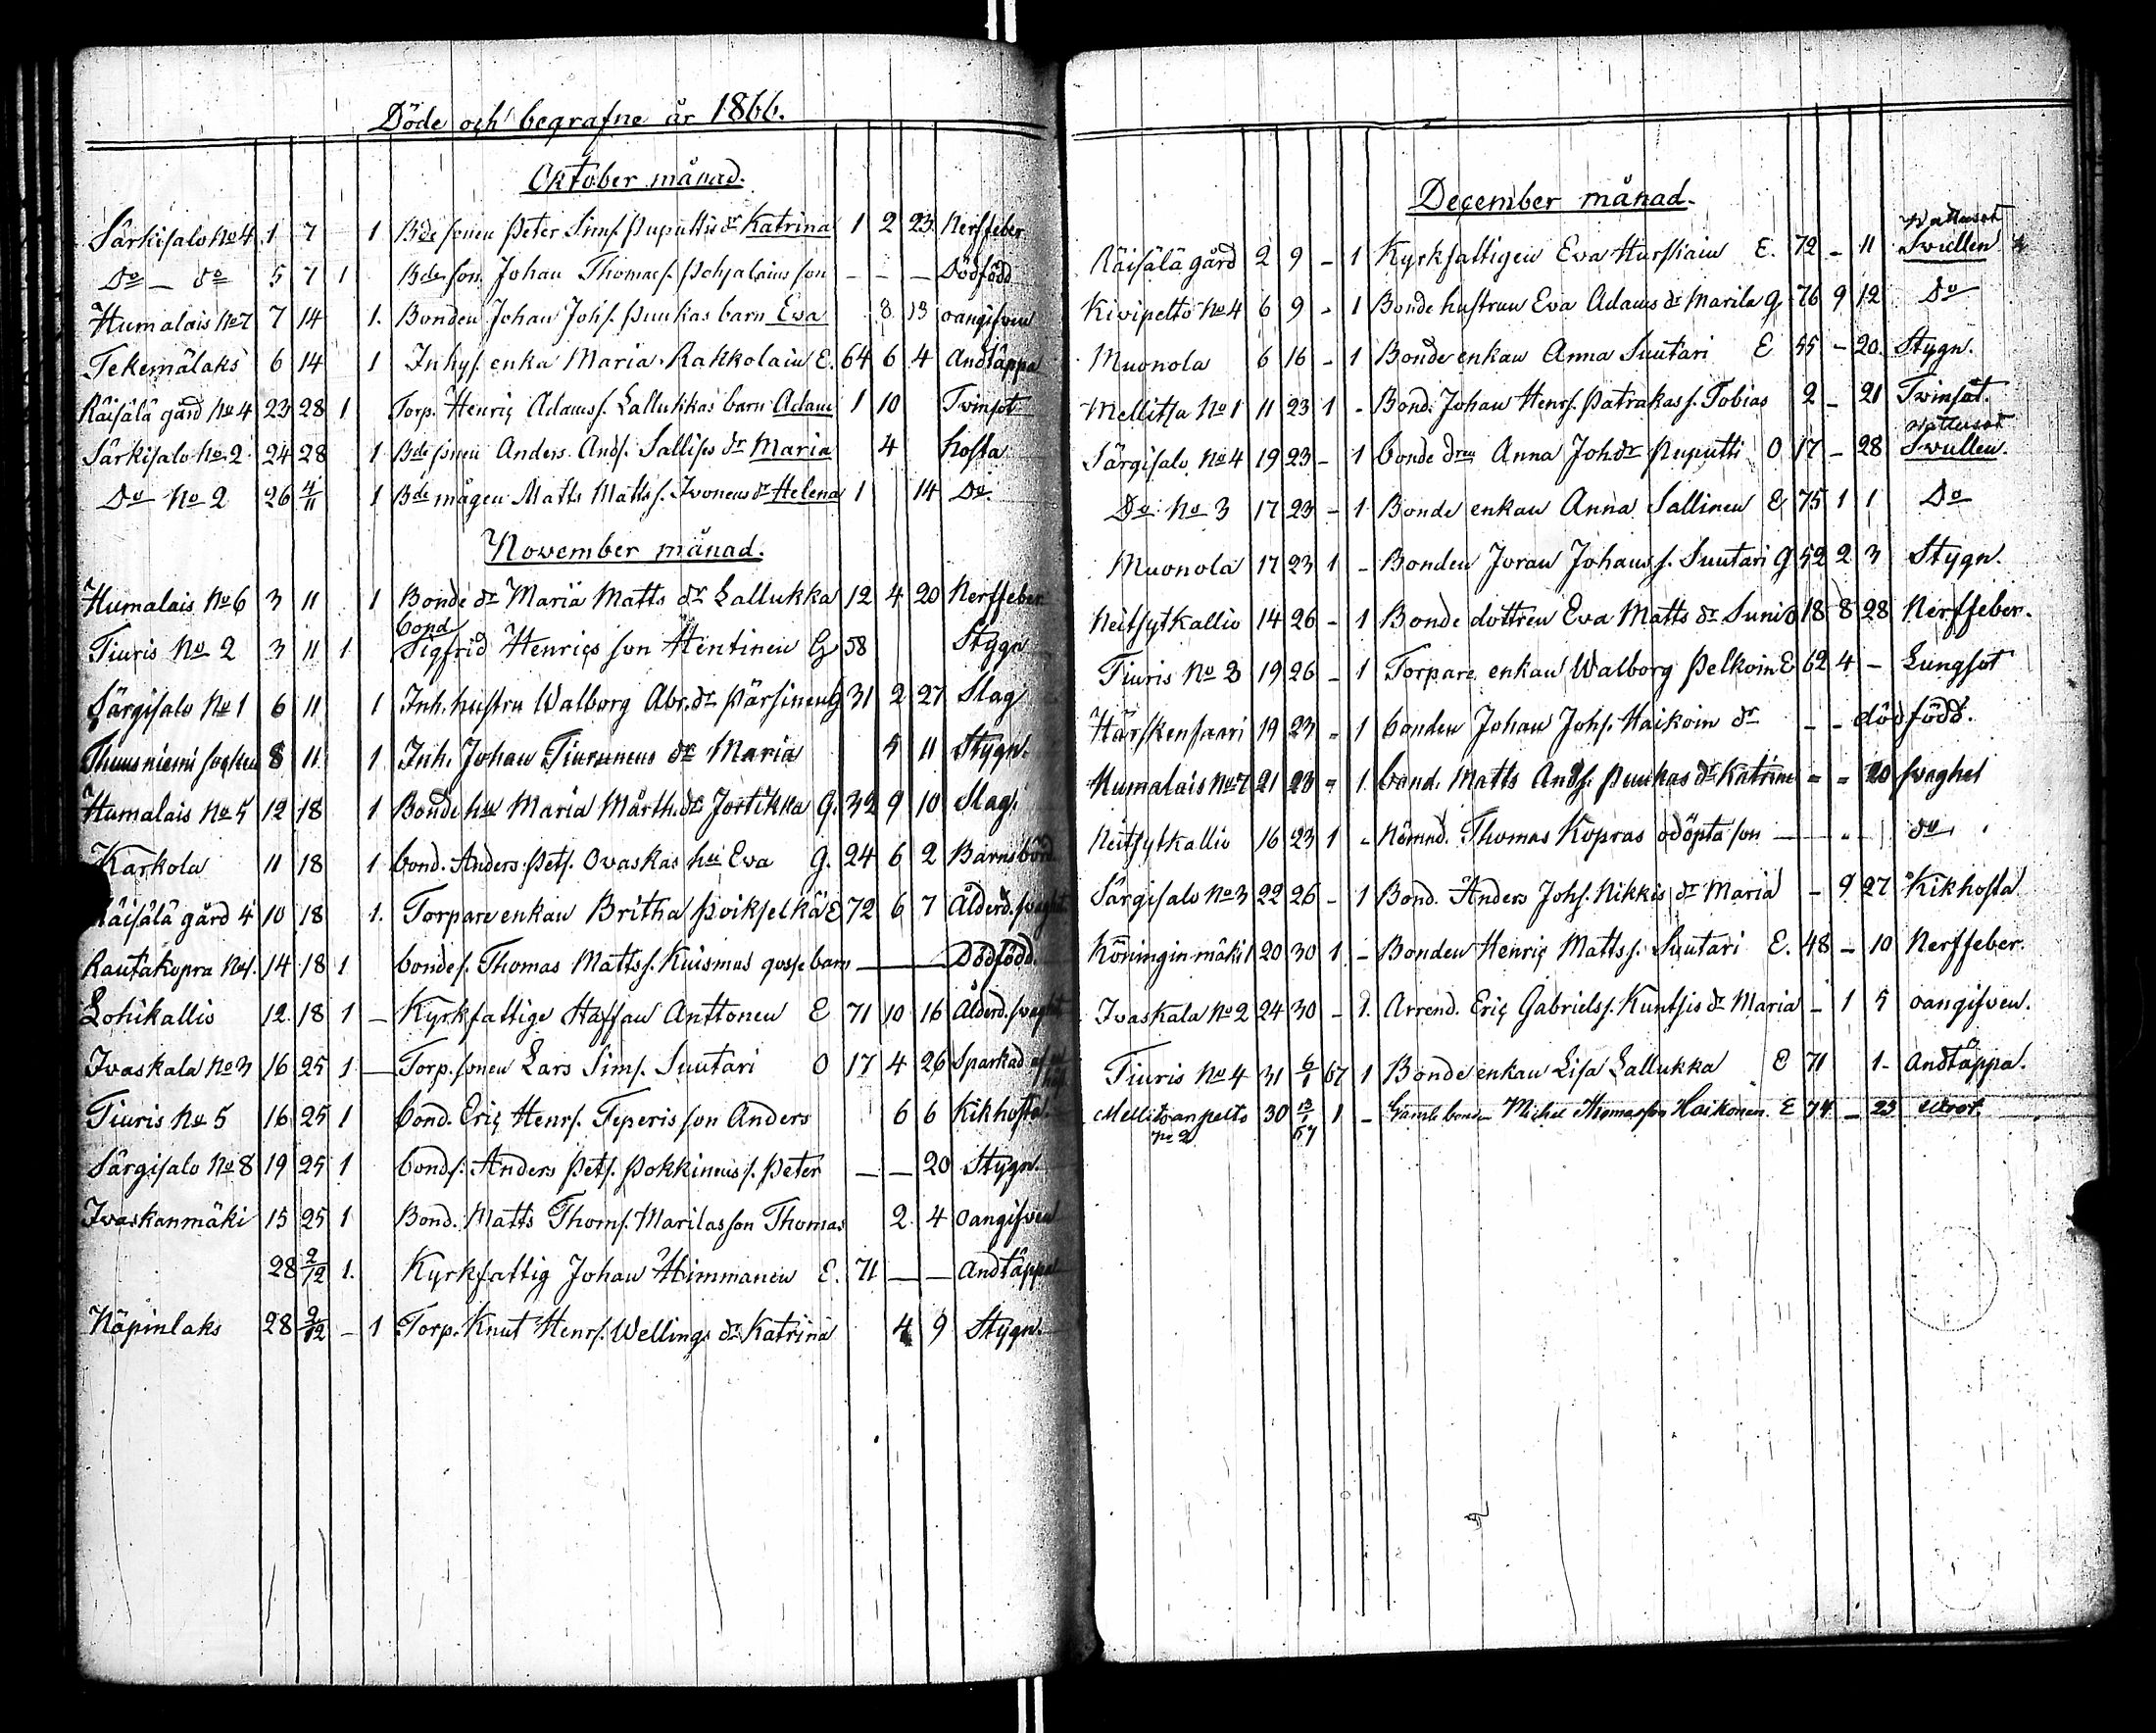 Döde och begrafne år 1866.
Oktober månad.
Särkisalo No 4 1 7 1 Bde sonen Peter Sims. Puputtis dr Katrina 1 2 23 Nerffeber
Do — do 5 7 1 Bde son Johan Thomas s. Pohjalains son — — — Dödfödd
Humalais No 7 7 14 1. Bonden Johan Johs. Punkas barn Eva 8 13 oangifven
Tekemälaks 6 14 1 Inhys. enka Maria Rakkolain E. 64 6 4 Andtäppa
Räisälä gård No 4 23 28 1 Torp. Henriç Adams s. Lallukkas barn Adam 1 10 Twinsot
Särkisalo No 2 24 28 1 Bde sonen Anders Ands. Sallises dr Maria 4 hosta
Do No 2 26 4/11 1 Bde mågen Matts Matts s. Ivonens dr Helena 1 14 Do
November månad.
Humalais No 6 3 11 1 Bonde dr Maria Matts dr Lallukka 12 4 20 Nerffeber
Tiuris No 2 3 11 1 bond Sigfrid Henriçs son Hentinen G 58 Stygn
Särgisalo No 1 6 11 1 Inh. hustru Walborg Abr. dr Pärsinen G 31 2 27 Slag
Thuusniemi socken 8 11 1 Inh. Johan Tiurunens dr Maria 5 11 Stygn.
Humalais No 5 12 18 1 Bonde hu Maria Mårth. dr Jortikka G. 32 9 10 Slag.
Karkola 11 18 1 bond. Anders Pets. Ovaskas hu Eva G. 24 6 2 Barnsbörd
Räisälä gård 4 10 18 1. Torpare enkan Britha Poikselkä E 72 6 7 Ålderd. svaght
Rautakopra No 1. 14 18 1 bondes. Thomas Matts s. Kuismas gosse barn — — — Dödfödd.
Lohikallio 12 18 1 — Kyrkfattige Staffan Anttonen E 71 10 16 Ålderd. svaght
Ivaskala No 3 16 25 1 — Torp. sonen Lars Sims. Suutari O 17 4 26 Sparkad af
Tiuris No 5 16 25 1 bond. Eriç Henrs. Teperis son Anders 6 6 Kikhosta
Särgisalo No 8 19 25 1 bonds. Anders Pets. Pokkinens s. Peter — — 20 Stygn.
Ivaskanmäki 15 25 1 Bond. Matts Thoms. Marilas son Thomas 2 4 oangifven
28 2/12 1. Kyrkfattig Johan Himmanen E. 71 — — Andtäppa
Näpinlaks 28 2/12 — 1 Torp. Knut Henrs. Wellings dr Katrina 4 9 Stygn.
December månad.
Wattusot
Räisälä gård 2 9 - 1 Kyrkfattigen Eva Hurskain E. 72 - 11 Svullen
Kivipelto No 4 6 9 - 1 Bonde hustrun Eva Adams dr Marila G 76 9 12 Do
Muonola 6 16 - 1 Bonde enkan Anna Suutari E 55 - 20. Stygn.
Mellitsa No 1 11 23 1 - Bond. Johan Henrs. Patrakas s. Tobias 2 - 21 Twinsot.
wattusot
Särgisalo No 4 19 23 - 1 bonde dren Anna Joh dr Puputti O 17 - 28 Svullen.
Do No 3 17 23 - 1 Bonde enkan Anna Sallinen E 75 1 1 Do
Muonola 17 23 1 - Bonden Joran Johans s. Suutari G 52 2 3 Stygn.
Neitsytkallio 14 26 - 1 Bonde dottren Eva Matts dr Suni O 18 8 28 Nerffeber.
Tiuris No 3 19 26 - 1 Torpare enkan Walborg Pelkoin E 62 4 - Lungsot
Härskensaari 19 23 - 1 bonden Johan Johs. Haikoin dr - - dödfödd.
Humalais No 7 21 23 - 1. bond. Matts Ands. Punkas dr Katrine - - 20 svaghet
Neitsytkallio 16 23 1 - Nämnd. Thomas Kopras odöpta son — - - do
Särgisalo No 3 22 26 - 1 Bond. Anders Johs. Nikkis dr Maria - 9 27 Kikhosta
Köninginmäki 1 20 30 1 - Bonden Henriç Matts s. Suutari E. 48 - 10 Nerffeber.
Ivaskala No 2 24 30 - 1. Arrend. Eriç Gabriels s. Kuntsis dr Maria - 1 5 oangifven.
Tiuris No 4 31 6/1 67 1 Bonde enkan Lisa Lallukka E 71 1- Andtäppa.
Mellitoanpelto No 2 30 13/1 67 1 - Gamle bonden Michel Thomasson Haikonen. E 74 - 23